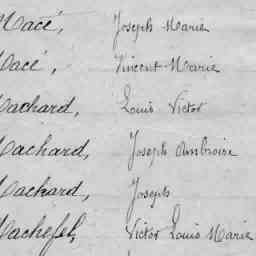 Macé, Joseph Marie
Macé, Vincent Marie
Machard, Louis Victor
Machard, Joseph Ambroise
Machard, Joseph
Machefel, Victor Louis Marie